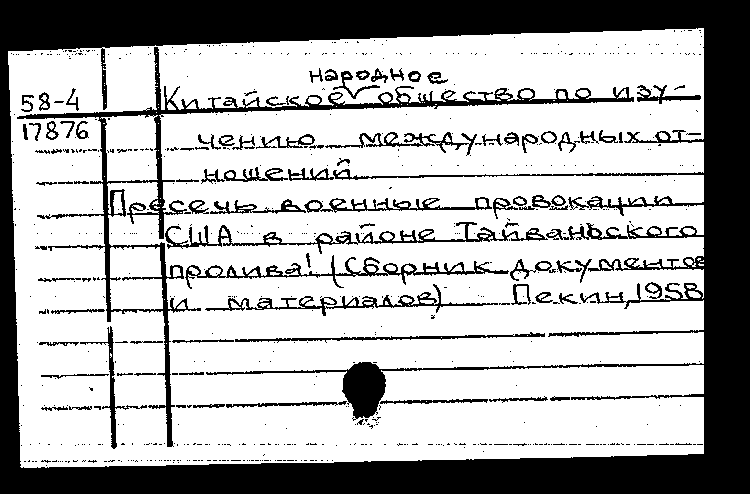 народное
58-4 Китайское V общество по изу-
17876 чению международных от-
ношений.
Пресечь военные провокации
США в районе Тайваньского
пролива! (Сборник документов
и материалов) Пекин, 1958